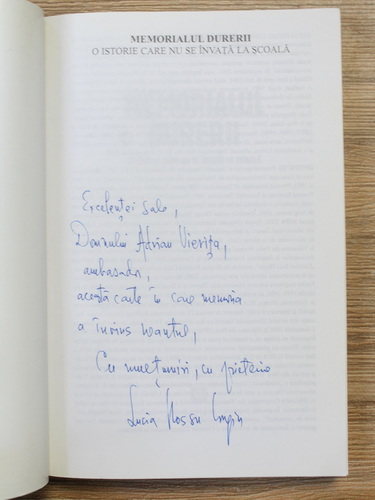 MEMORIALUL DURERII
O ISTORIE CARE NU SE ÎNVAȚĂ LA ȘCOALĂ
Excelenței Sale,
Domnului Adrian Vierița,
ambasador,
această carte în care memoria
a învins neantul,
Cu mulțumiri, cu prietenie
Lucia Hossu Longin